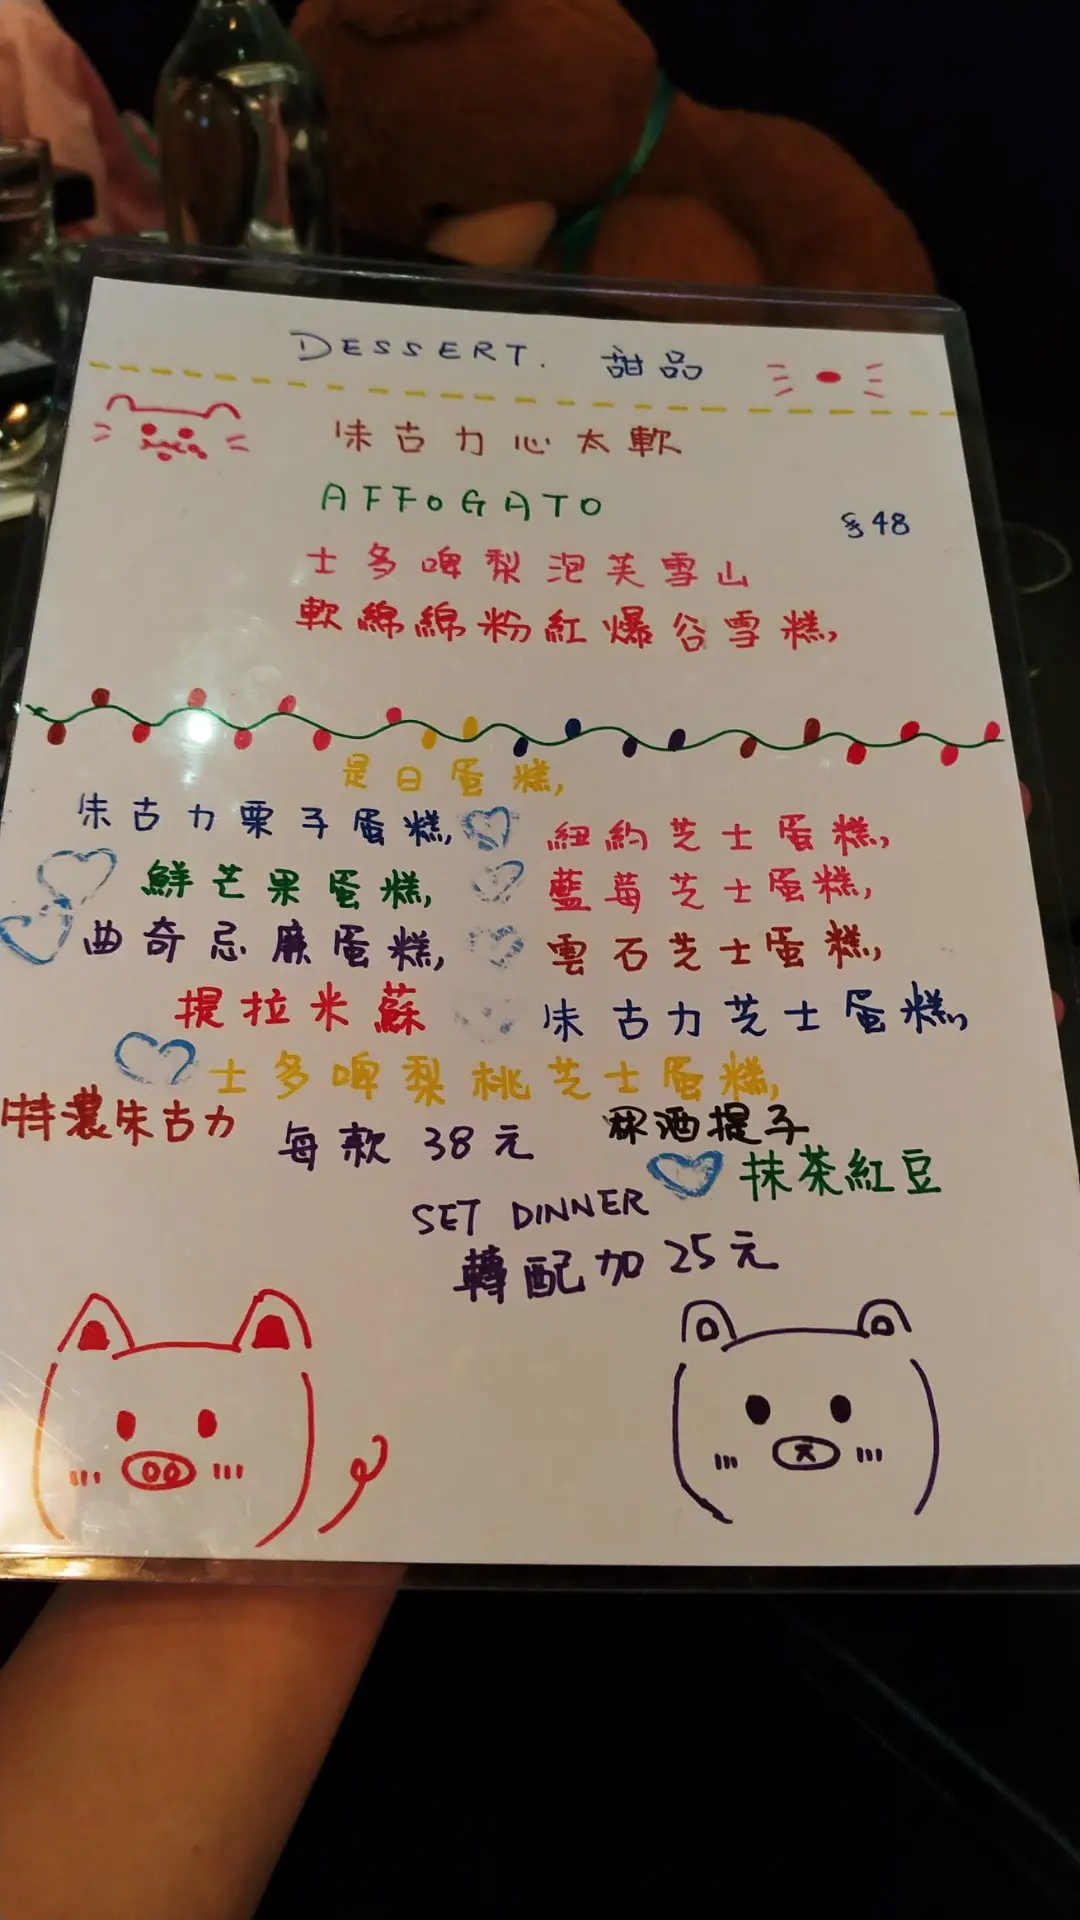 DESSERT. 甜品
朱古力心太軟
AFFOGATO
$48
士多啤梨泡芙雪山
軟綿綿粉紅爆谷雪糕
是日蛋糕
朱古力栗子蛋糕
紐約芝士蛋糕
鮮芒果蛋糕
藍莓芝士蛋糕
曲奇忌廉蛋糕
雲石芝士蛋糕
提拉米蘇
朱古力芝士蛋糕
士多啤梨桃芝士蛋糕
特濃朱古力
每款 38元
冧酒提子
抹茶紅豆
SET DINNER
轉配加 25元